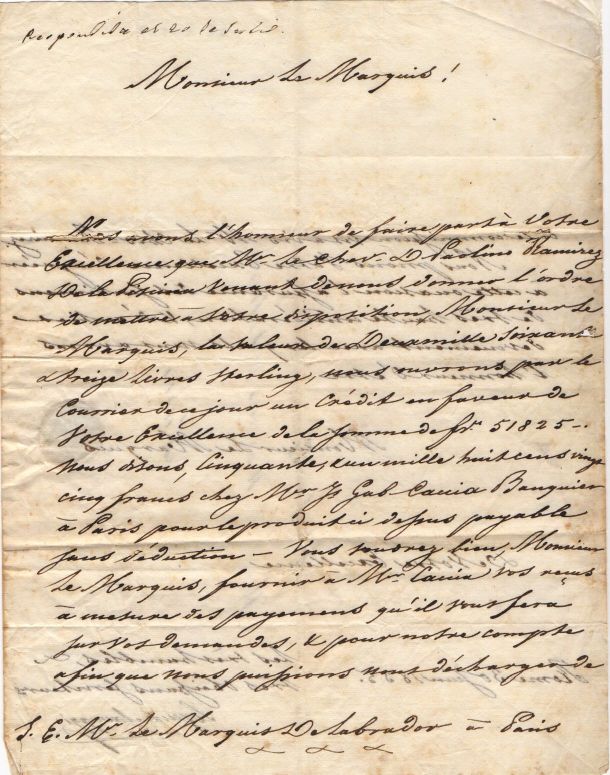 Respondida el 20 de Julio.
Monsieur Le Marquis!
Nous avons l'honneur de faire part à Votre
Excellence que Mr. le Chev. D. Paolino Ramirez
De la Piscina venant de nous donner l'ordre
de mettre à votre disposition, Monsieur Le
Marquis, la valeur de Deuxmille Soixant
& treize Livres Sterling, nous ouvrons par le
Courrier de ce jour un Crédit en faveur de
Votre Excellence de la somme de frs. 51825 -
nous disons, Cinquante & un mille huit cens vingt
cinq francs chez Mr. Js Gab. Caccia Banquier
à Paris pour le produit ci dessus payable
sans déduction - Vous voudrez bien, Monsieur
Le Marquis, fournir à Mr. Caccia vos reçus
à mesure des payemens qu'il vous fera
sur vos demandes, & pour notre compte
afin que nous puissions nous décharger de
S. E. Mr. Le Marquis De Labrador à Paris